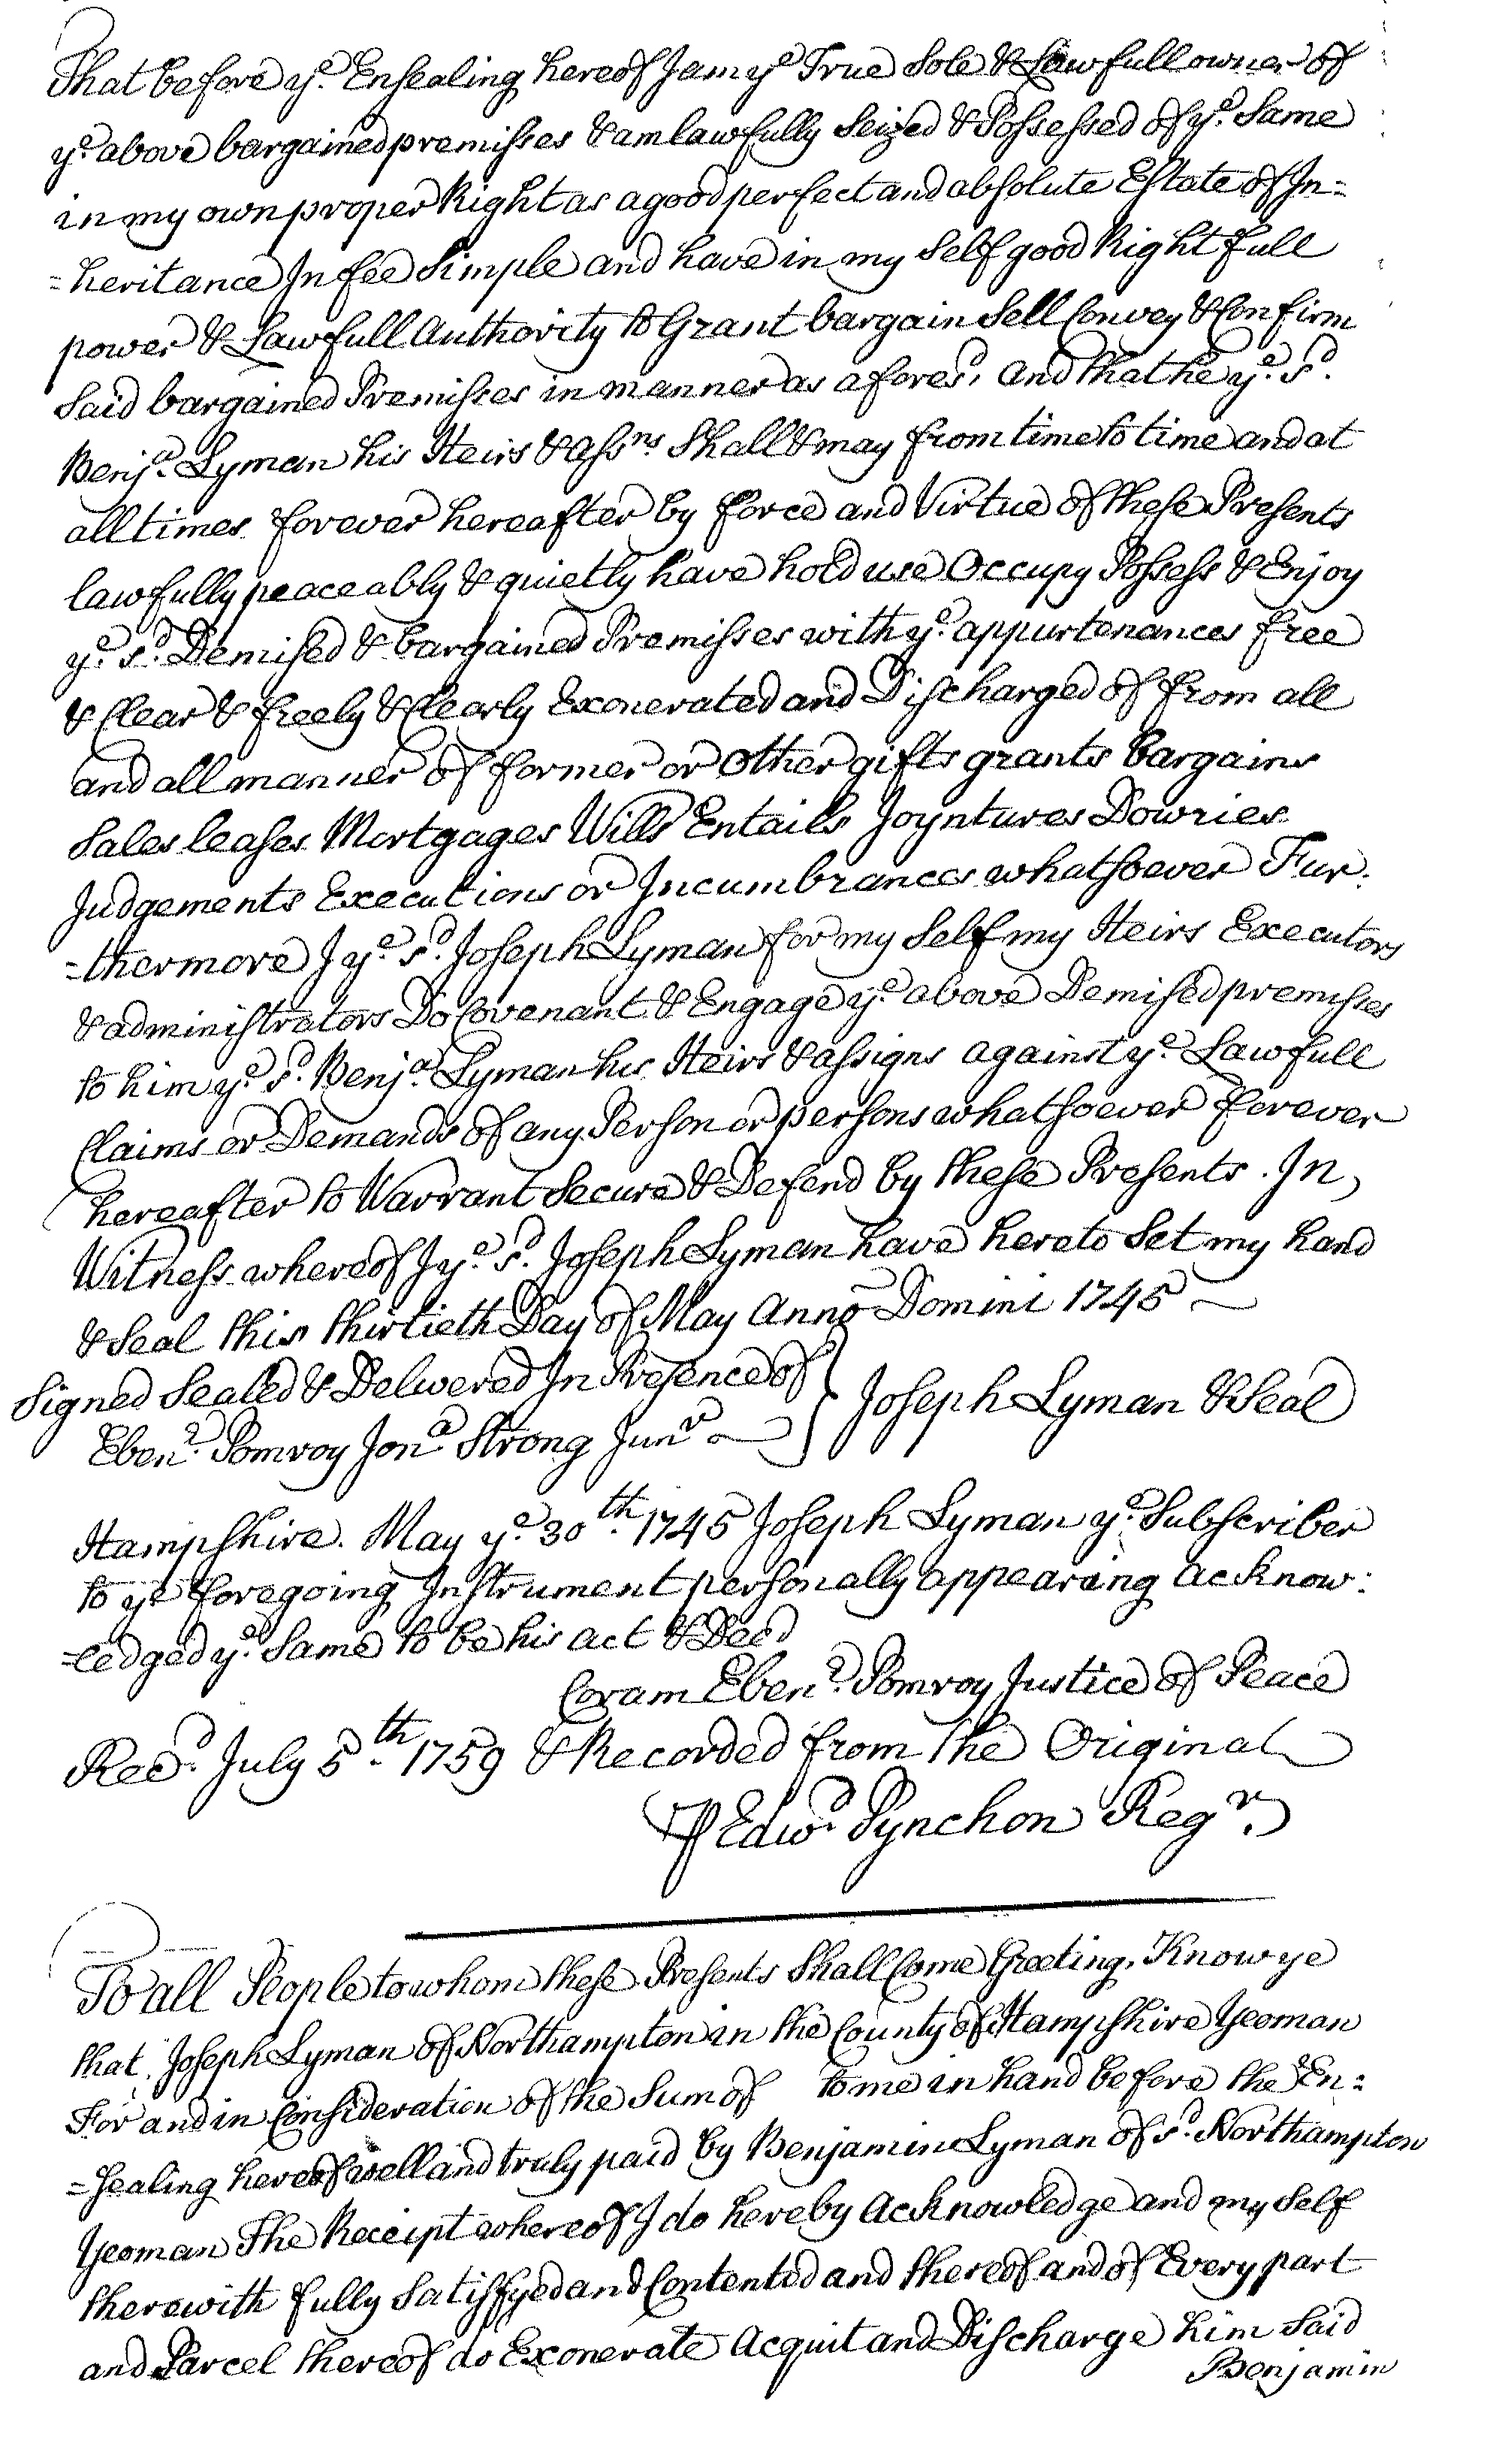 That before ye. Ensealing hereof I am ye True Sole & Lawfull owner of
ye. above bargained premisses & am lawfully Seized & Possessed of ye. Same
in my own proper Right as a good perfect and absolute Estate of In=
=heritance In fee Simple and have in my Self good Right full
power & Lawfull Authority to Grant bargain Sell Convey & Confirm
Said bargained Premisses in manner as afores.d, and that he ye. sd.
Benja. Lyman his Heirs & assns Shall & may from time to time and at
all times forever hereafter by force and Virtue of these Presents
lawfully peaceably & quietly have hold use Occupy Possess & Enjoy
ye. sd. Demised & bargained Premisses with ye. appurtenances free
& Clear & freely & Clearly Exonerated and Discharged of from all
and all manner of former or other gifts grants bargains
Sales leases Mortgages Wills Entails Joyntures Dowries
Judgements Executions or Incumbrances whatsoever Fur:
=thermore I ye. sd. Joseph Lyman for my Self my Heirs Executors
& administrators Do Covenant & Engage ye. above Demised premisses
to him ye. sd. Benja. Lyman his Heirs & assigns against ye. Lawfull
Claims or Demands of any Person or persons whatsoever forever
hereafter to Warrant Secure & Defend by these Presents. In
Witness whereof I ye. sd. Joseph Lyman have hereto Set my hand
& Seal this thirtieth Day of May Anno Domini 1745
Signed Sealed & Delivered In Presence of } Joseph Lyman & Seal
Ebenr. Pomroy Jona. Strong Junr
Hampshire. May ye. 30th. 1745 Joseph Lyman ye. Subscriber
to ye foregoing Instrument personally appearing acknow:
=ledged ye. Same to be his act & Deed
Coram Ebenr. Pomroy Justice of Peace
Recd. July 5th. 1759 & Recorded from the Original
℗ Edwd. Pynchon Regr.
To all People to whom these Presents Shall Come Greeting, Know ye
that Joseph Lyman of Northampton in the County of Hampshire Yeoman
For and in Consideration of the Sum of to me in hand before the En:
=sealing hereof well and truly paid by Benjamin Lyman of sd. Northampton
Yeoman The Receipt whereof I do hereby acknowledge and my Self
therewith fully Satisfyed and Contented and thereof and of Every part
and Parcel thereof do Exonerate Acquit and Discharge him Said
Benjamin